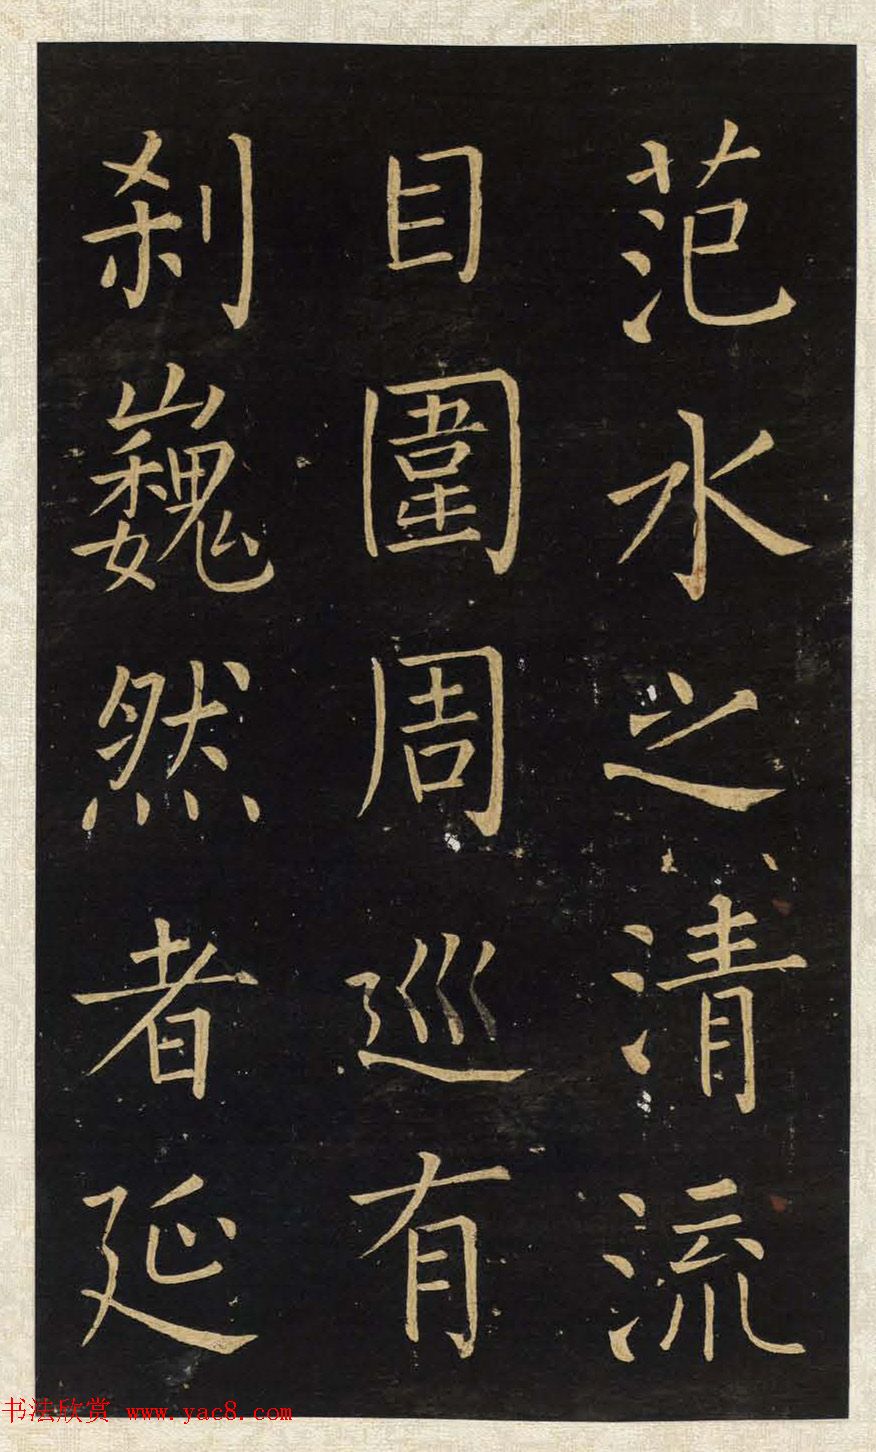 范水之清流
目圍周巡有
刹巍然者延
书法欣赏 www.yac8.com